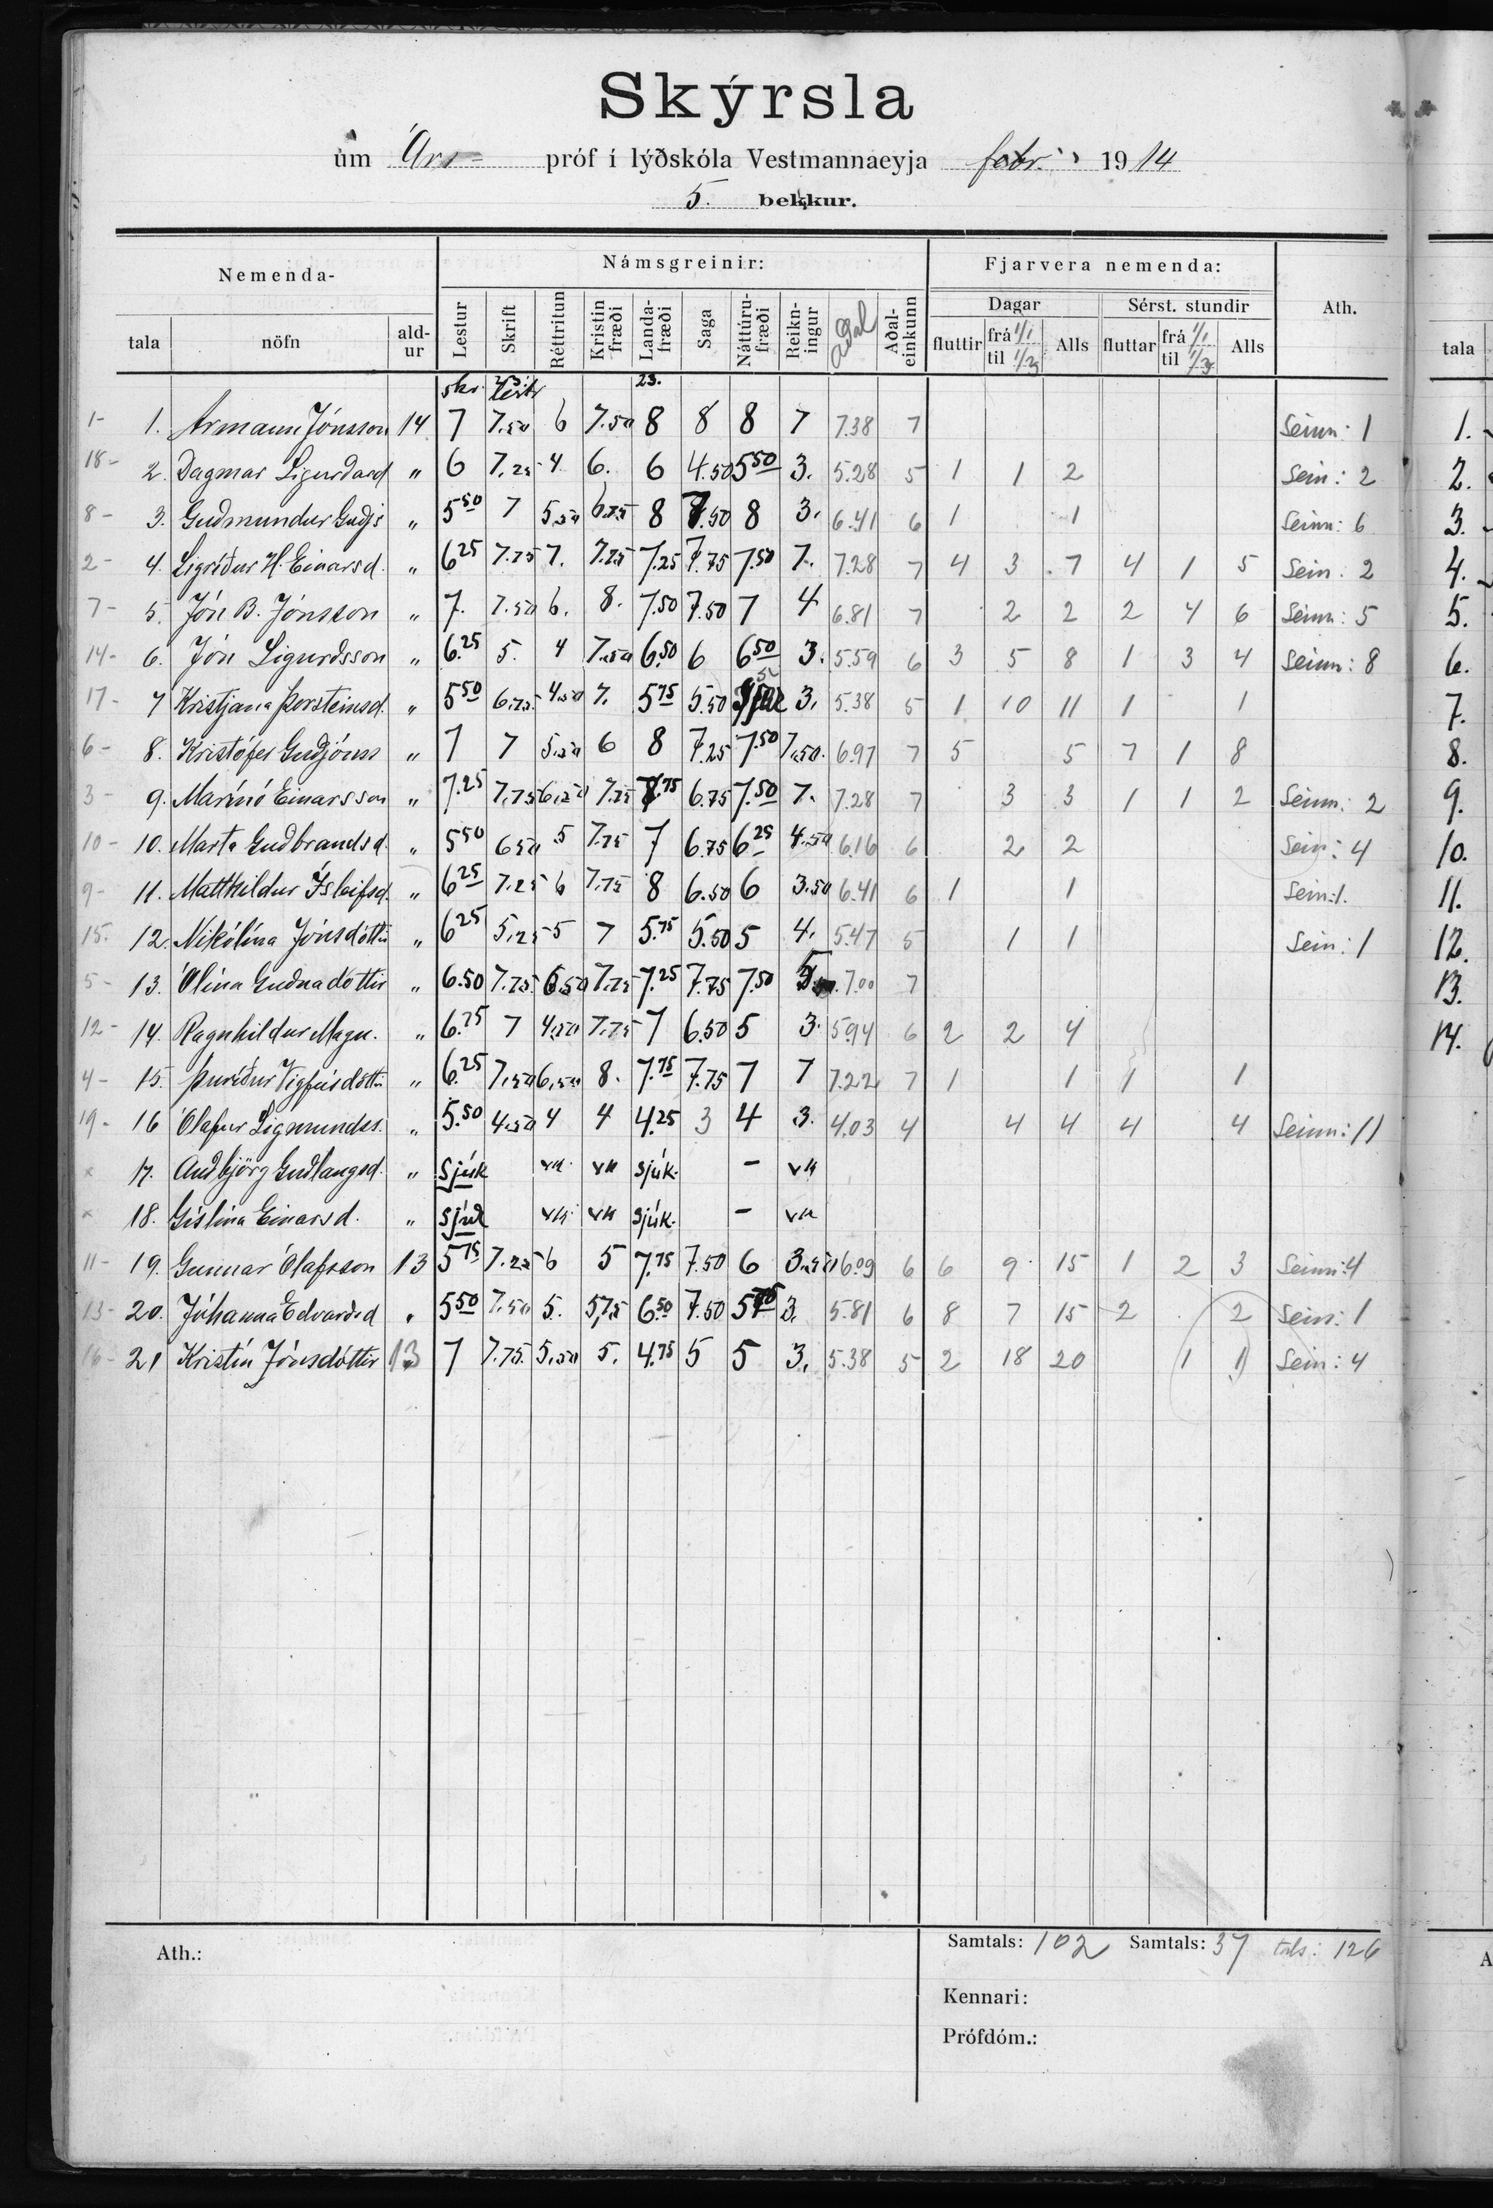 Skýrsla
um Árs- próf í lýðskóla Vestmannaeyja febr. 1914
5. bekkur.
Nemenda- Námsgreinir: Fjarvera nemenda: Ath.
Dagar Sérst. stundir
tala nöfn aldur Lestur Skrift Réttritun Kristin fræði Landafræði Saga Náttúrufræði Reikningur Aðal Aðaleinkunn fluttir frá 1/1 til 1/3 Alls fluttar frá 1/1 til 1/3 Alls tala
skr 23.
1- 1. Ármann Jónsson 14 7 7.50 6 7.50 8 8 8 7 7.38 7 Seinn: 1 1.
18- 2. Dagmar Sigurdard „ 6 7.25 4 6. 6 4.50 5 50 3. 5.28 5 1 1 2 Sein: 2 2.
8- 3. Guðmundur Guðjs „ 5 50 7 5.50 6.75 8 7.50 8 3. 6.41 6 1 1 Seinn: 6 3.
2- 4. Sigríður H. Einarsd. „ 6 25 7.75 7. 7.75 7.25 7.75 7.50 7. 7.28 7 4 3 7 4 1 5 Sein: 2 4.
7- 5. Jón B. Jónsson „ 7. 7.50 6. 8. 7.50 7.50 7 4 6.81 7 2 2 2 4 6 Seinn: 5 5.
14- 6. Jón Sigurðsson „ 6.25 5. 4 7.50 6.50 6 6 50 3. 5.59 6 3 5 8 1 3 4 Seinn: 8 6.
17- 7 Kristjana Þorsteinsd. „ 5 50 6.75 4.50 7. 5 75 5.50 3. 5.38 5 1 10 11 1 1 7.
6- 8. Kristófer Guðjónss „ 7 7 5.50 6 8 7.25 7.50 7.50. 6.97 7 5 5 7 1 8 8.
3- 9. Marínó Einarsson „ 7.25 7.75 6.50 7.75 7.75 6.75 7.50 7. 7.28 7 3 3 1 1 2 Seinn: 2 9.
10- 10. Marta Guðbrandsd. „ 5 50 6 50 5 7.75 7 6.75 6 25 4.50 6.16 6 2 2 Sein: 4 10.
9- 11. Matthildur Ísleifsd. „ 6 25 7.25 6 7.75 8 6.50 6 3.50 6.41 6 1 1 Sein: 1. 11.
15. 12. Nikólína Jónsdóttir „ 6 25 5.25 5 7 5.75 5.50 5 4. 5.47 5 1 1 Sein: 1 12.
5- 13. Ólína Guðnadóttir „ 6.50 7.75. 6.50 7.75 7.25 7.75 7.50 5. 7.00 7 13.
12- 14. Ragnhildur Magn. „ 6.75 7 4.50 7.75 7 6.50 5 3. 5.94 6 2 2 4 14.
4- 15. Þuríður Vigfúsdóttir „ 6.25 7.50 6.50 8. 7.75 7.75 7 7 7.22 7 1 1 1 1
19- 16 Ólafur Sigmundss. „ 5.50 4.50 4 4 4.25 3 4 3. 4.03 4 4 4 4 4 Seinn: 11
x 17. Auðbjörg Guðlaugsd. „ sjúk sjúk. –
x 18. Gíslína Einarsd. „ sjúk sjúk. –
11- 19. Gunnar Ólafsson 13 5 75 7.25 6 5 7.75 7.50 6 3.50 6.09 6 6 9 15 1 2 3 Seinn: 4
13- 20. Jóhanna Edvardsd „ 5 50 7.50 5. 5.75 6.50 7.50 5 75 3. 5.81 6 8 7 15 2 2 Sein: 1
16- 21 Kristín Jónsdóttir 13 7 7.75. 5.50 5. 4.75 5 5 3. 5.38 5 2 18 20 1 1 Sein: 4
Ath.: Samtals: 102 Samtals: 37 tals: 126 A
Kennari:
Prófdóm.: